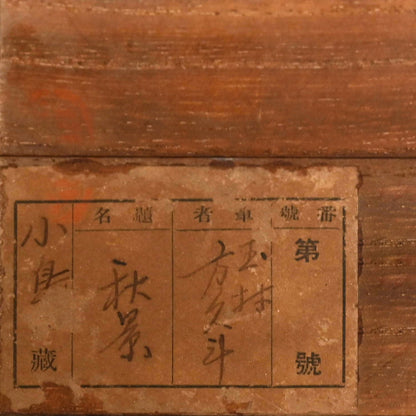 番號
第 號
筆者
玉村
方久斗
題名
秋景
小島
藏